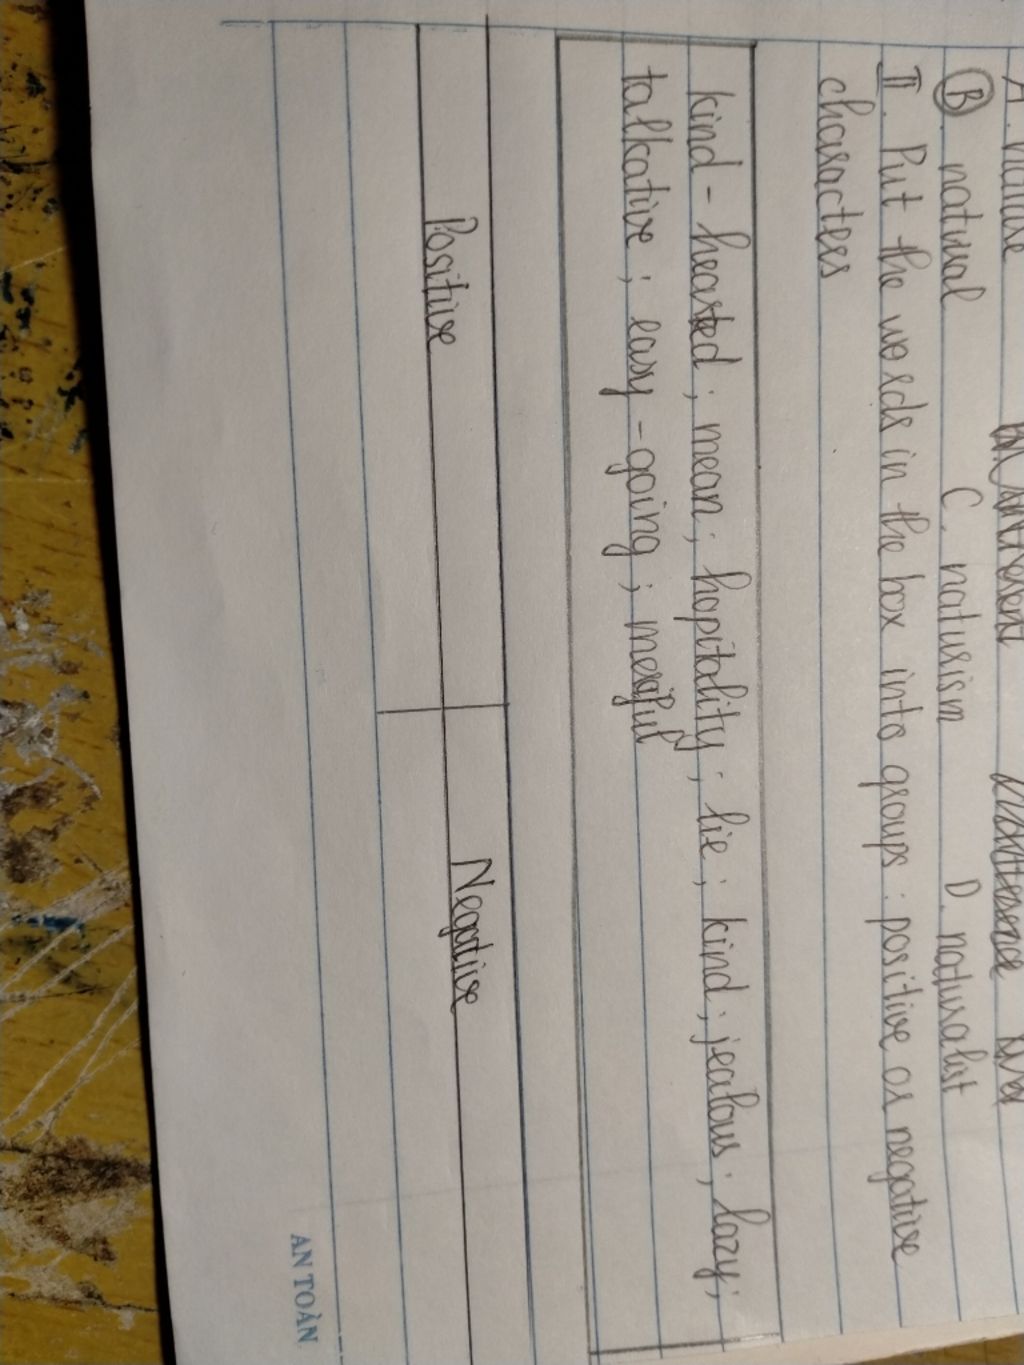 B natural C. naturism D. naturalist
II. Put the words in the box into groups: positive or negative
characters
kind-hearted; mean; hopitality; lie; kind; jealous; lazy;
talkative; easy-going; merciful
Positive Negative
AN TOÀN